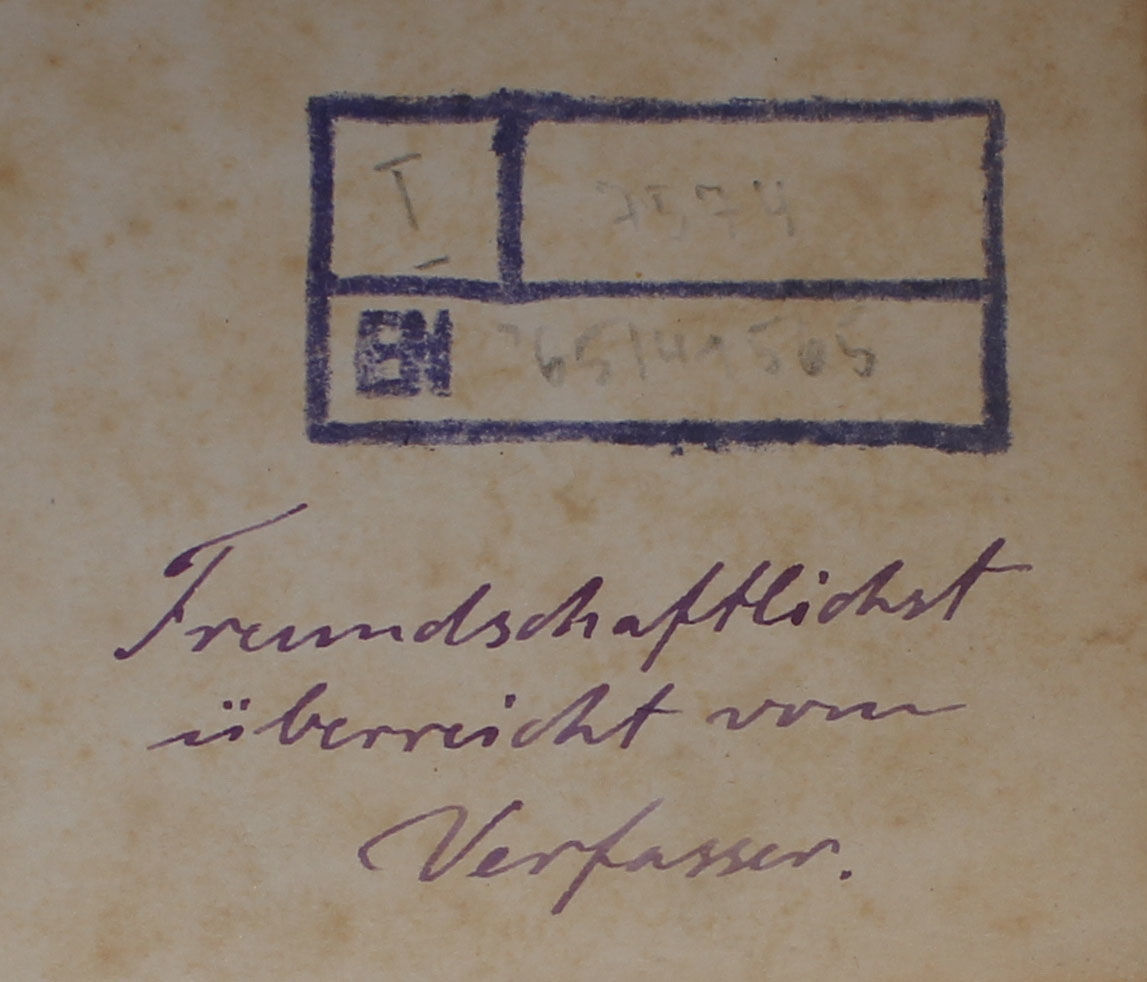 I 7574
EM 65/41565
Freundschaftlichst
überreicht vom
Verfasser.